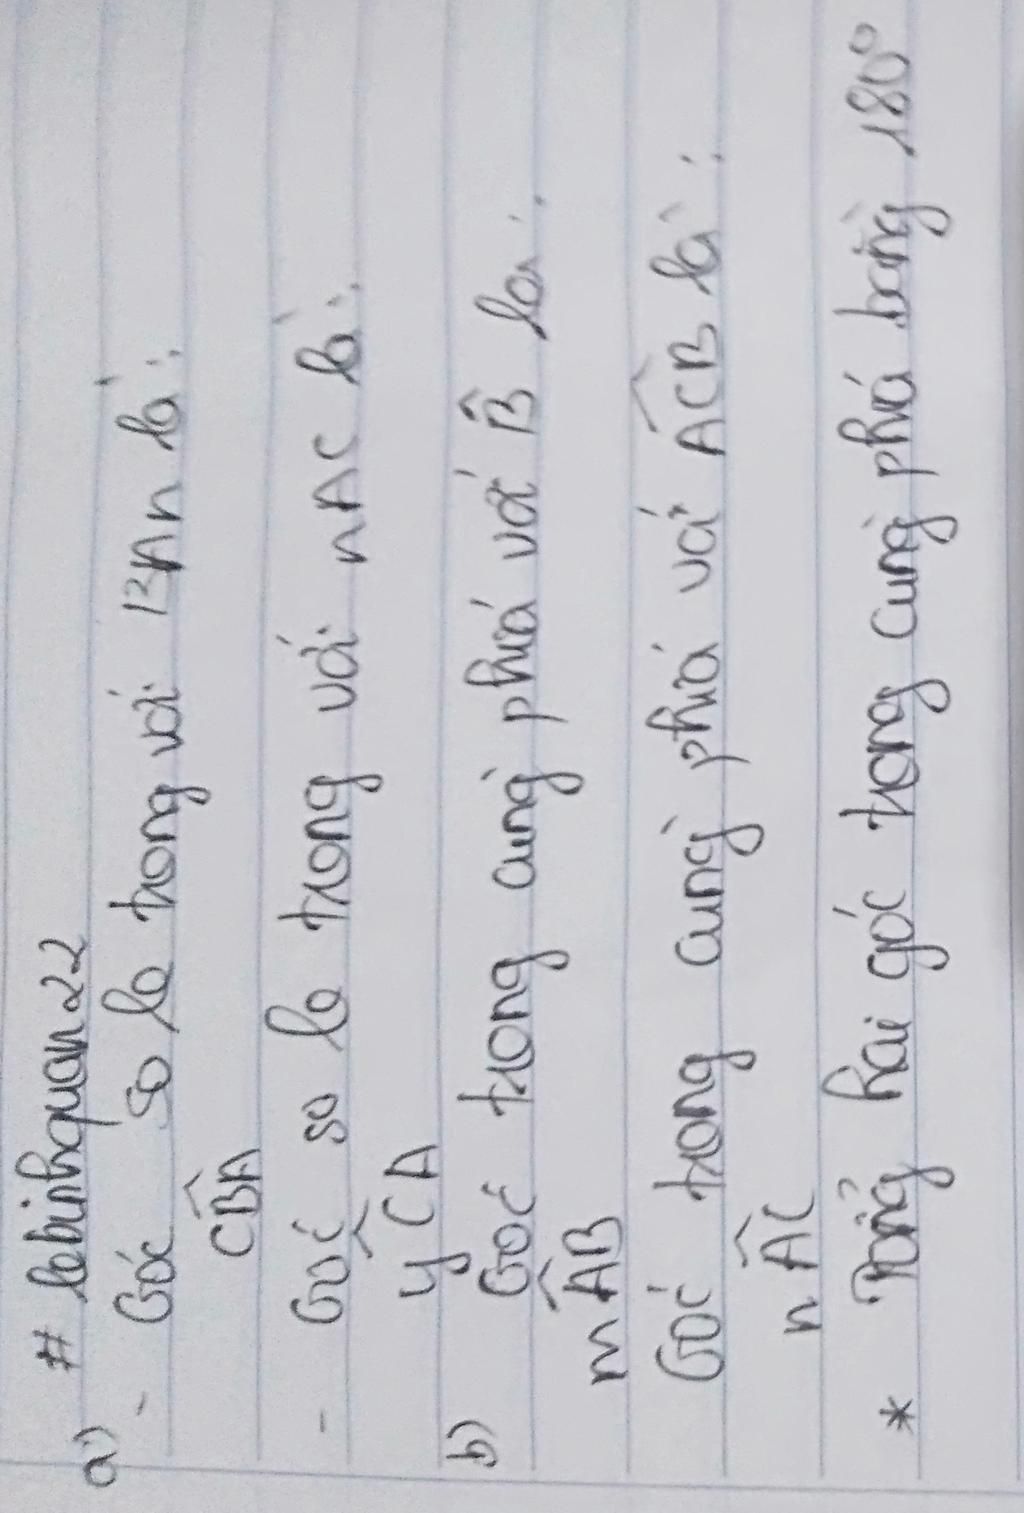 # lebinhquan22
a)
- Góc so le trong với BAn là:
CBA
- Góc so le trong với nAC là:
yCA
b) Góc trong cùng phía với B̂ là:
mÂB
Góc trong cùng phía với ACB là:
nÂC
* Tổng hai góc trong cùng phía bằng 180°